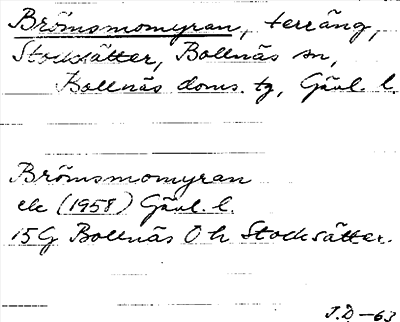 Brömsmomyran, terräng,
Stocksätter, Bollnäs sn,
Bollnäs doms. tg, Gävl. l.
Brömsmomyran
ek (1958) Gävl. l.
15G Bollnäs Öh Stocksätter.
J.D-63